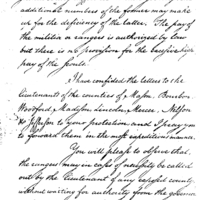 additional numbers of the former may make
us for the deficiency of the latter. The pay of
the militia or rangers is authorized by law
but there is no provision for the
pay of the scouts.
I have confided the letters to the
lieutenants of the counties of Mason, Bourbon
Woodford, Madison, Lincoln, Mercer, Nelson
& Jefferson to your protection and I pray you
to forward them in the most expeditious manner.
You will please to observe that,
the rangers may in cases of necessity be called
out by the lieutenant of any exposed county
without waiting for authority from the governor